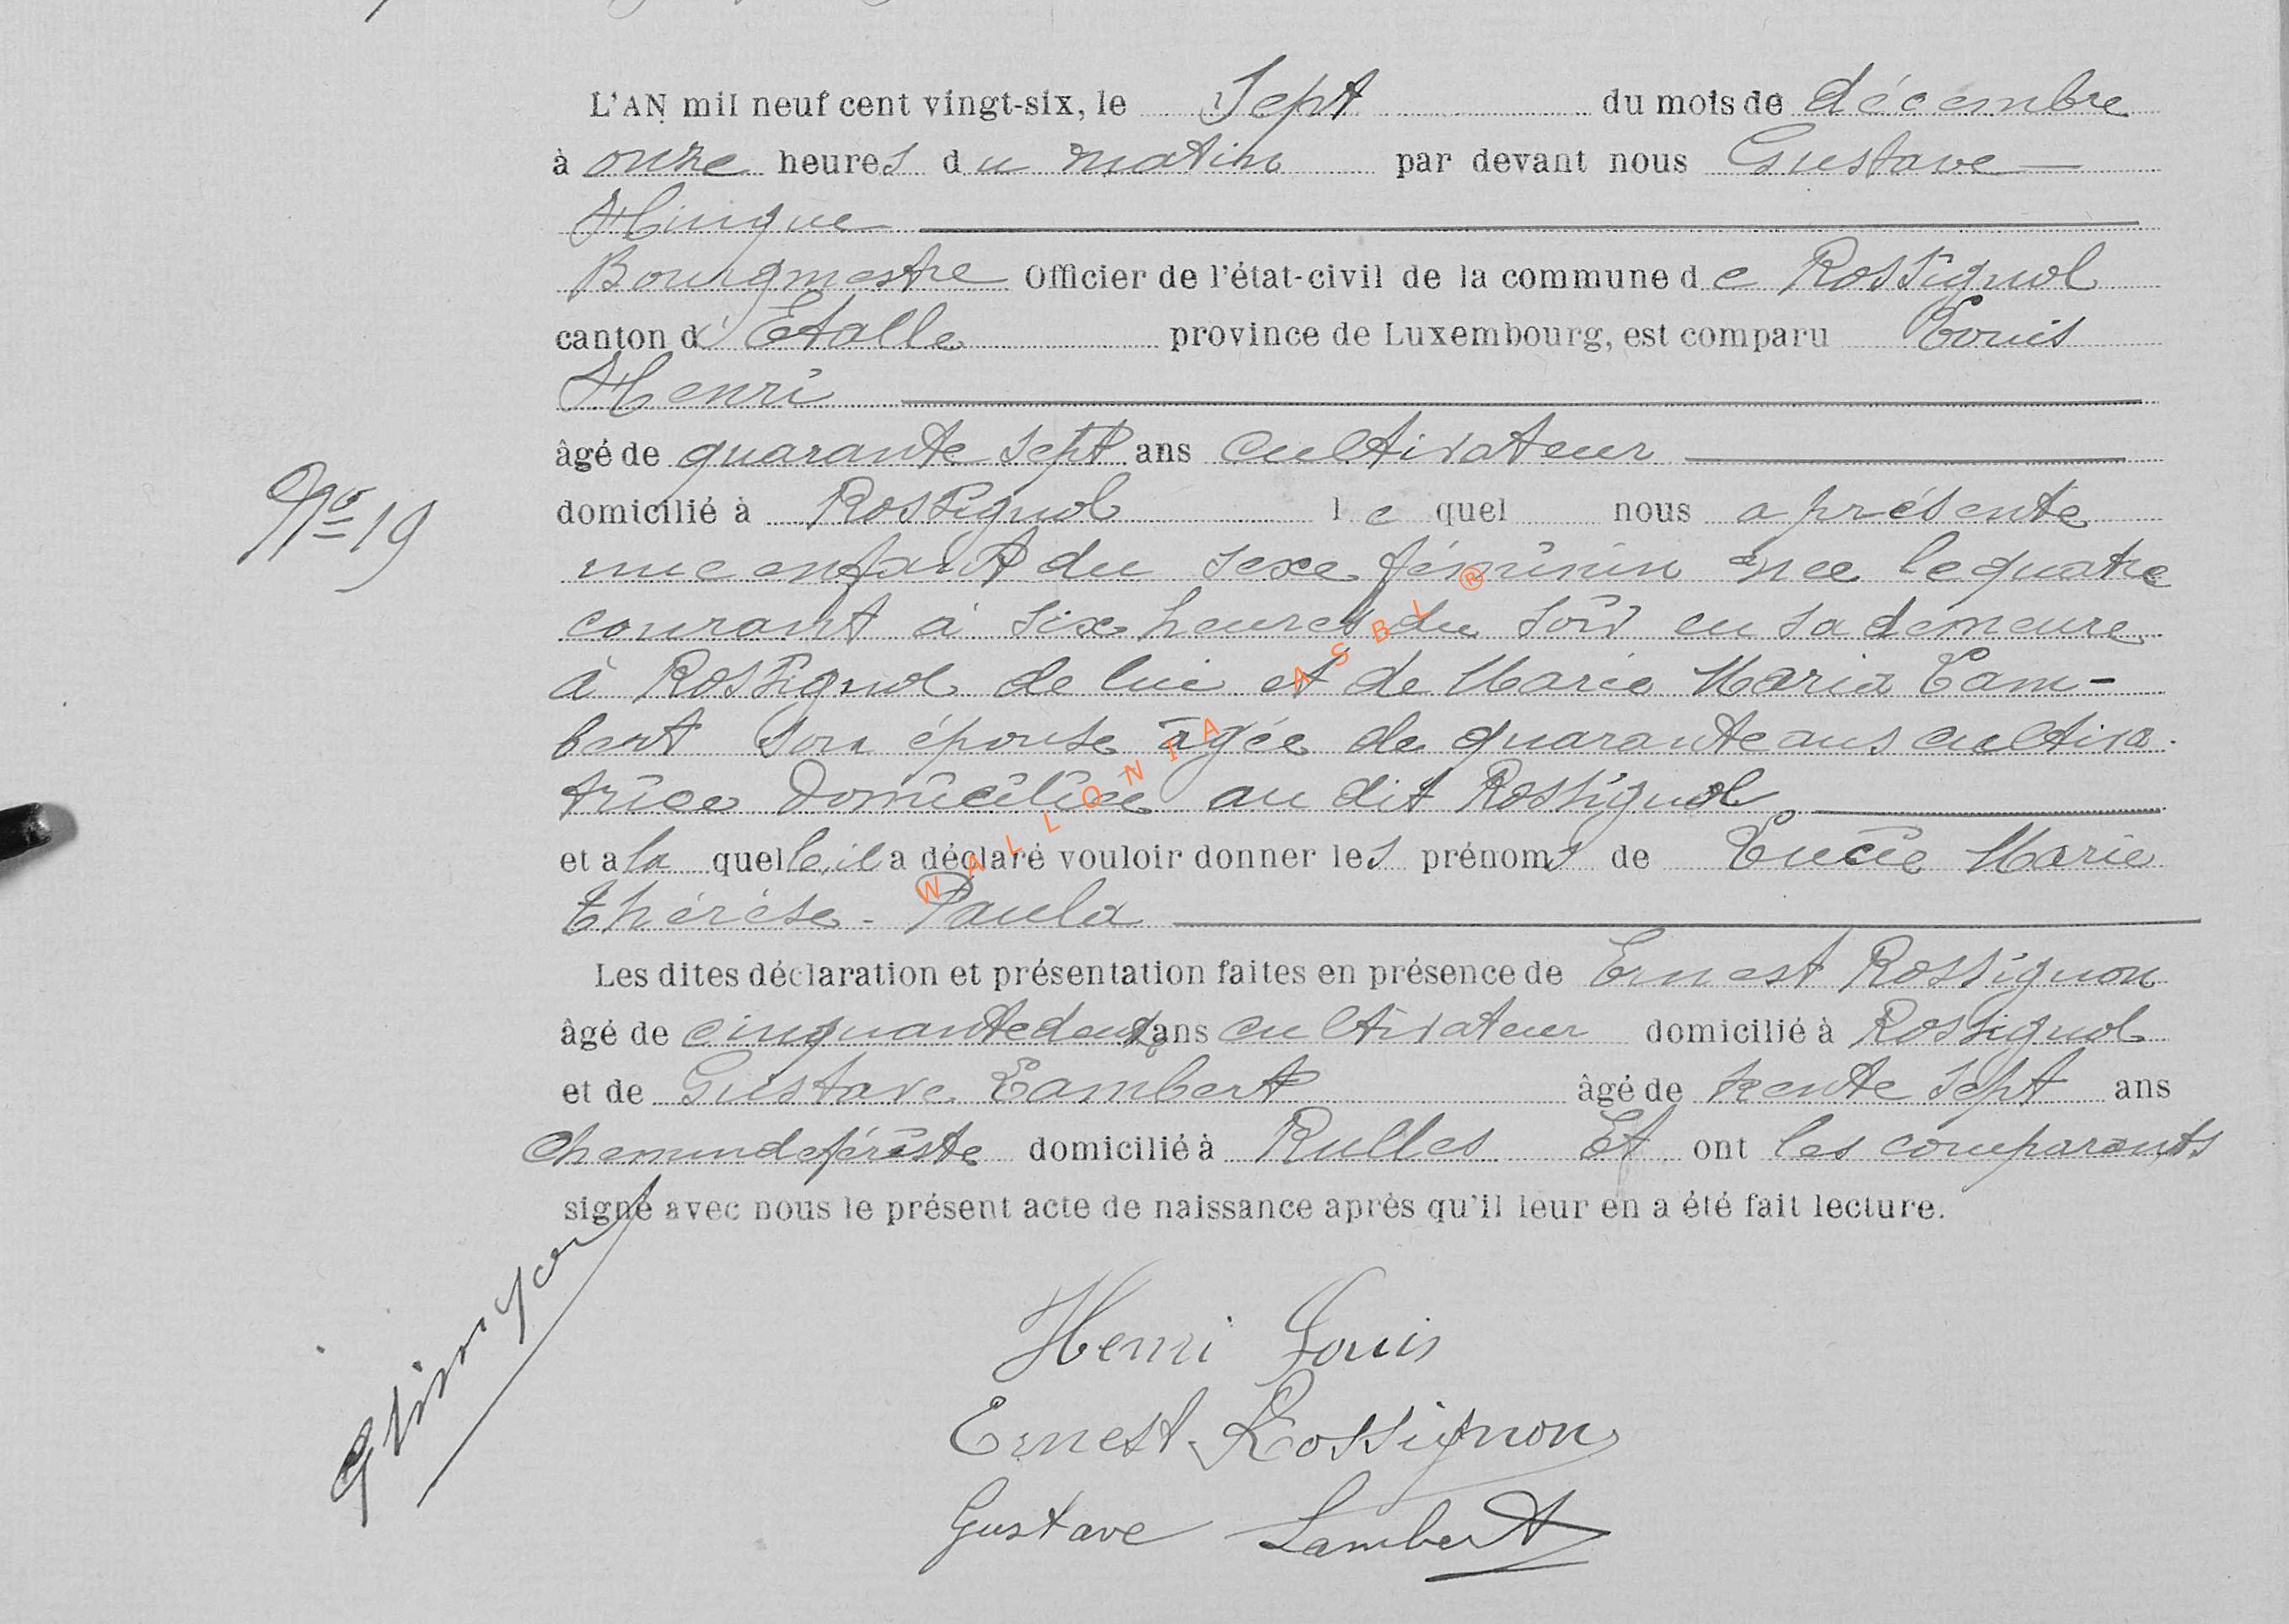 L'AN mil neuf cent vingt-six, le Sept du mois de décembre
à onze heures du matin par devant nous Gustave
Hinque
Bourgmestre Officier de l'état-civil de la commune de Rossignol
canton d'Etalle province de Luxembourg, est comparu Louis
Henri
âgé de quarante sept ans cultivateur
N° 19
domicilié à Rossignol lequel nous a présenté
une enfant du sexe féminin née le quatre
courant à six heures du soir en sa demeure
à Rossignol de lui et de Marie Maria Lam-
bert son épouse âgée de quarante ans cultiva-
trice domiciliée au dit Rossignol
et a la quelle il a déclaré vouloir donner les prénoms de Lucie Marie
Thérèse - Paula
Les dites déclaration et présentation faites en présence de Ernest Rossignon
âgé de cinquante deux ans cultivateur domicilié à Rossignol
et de Gustave Lambert âgé de trente sept ans
chemindefériste domicilié à Rulles Et ont les comparants
signé avec nous le présent acte de naissance après qu'il leur en a été fait lecture.
Henri Louis
Ernest Rossignon
Gustave Lambert
WALLONIA ASBL ®